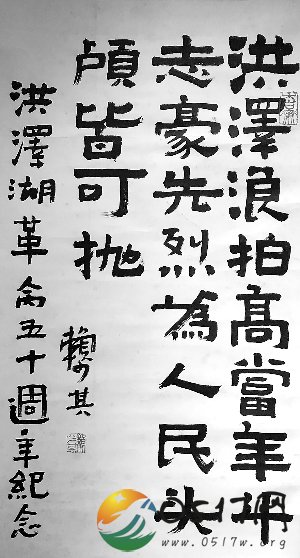 洪澤浪拍高當年壯
志豪先烈為人民頭
顱皆可拋
賴少其
洪澤湖革命五十週年紀念
www.0517w.org